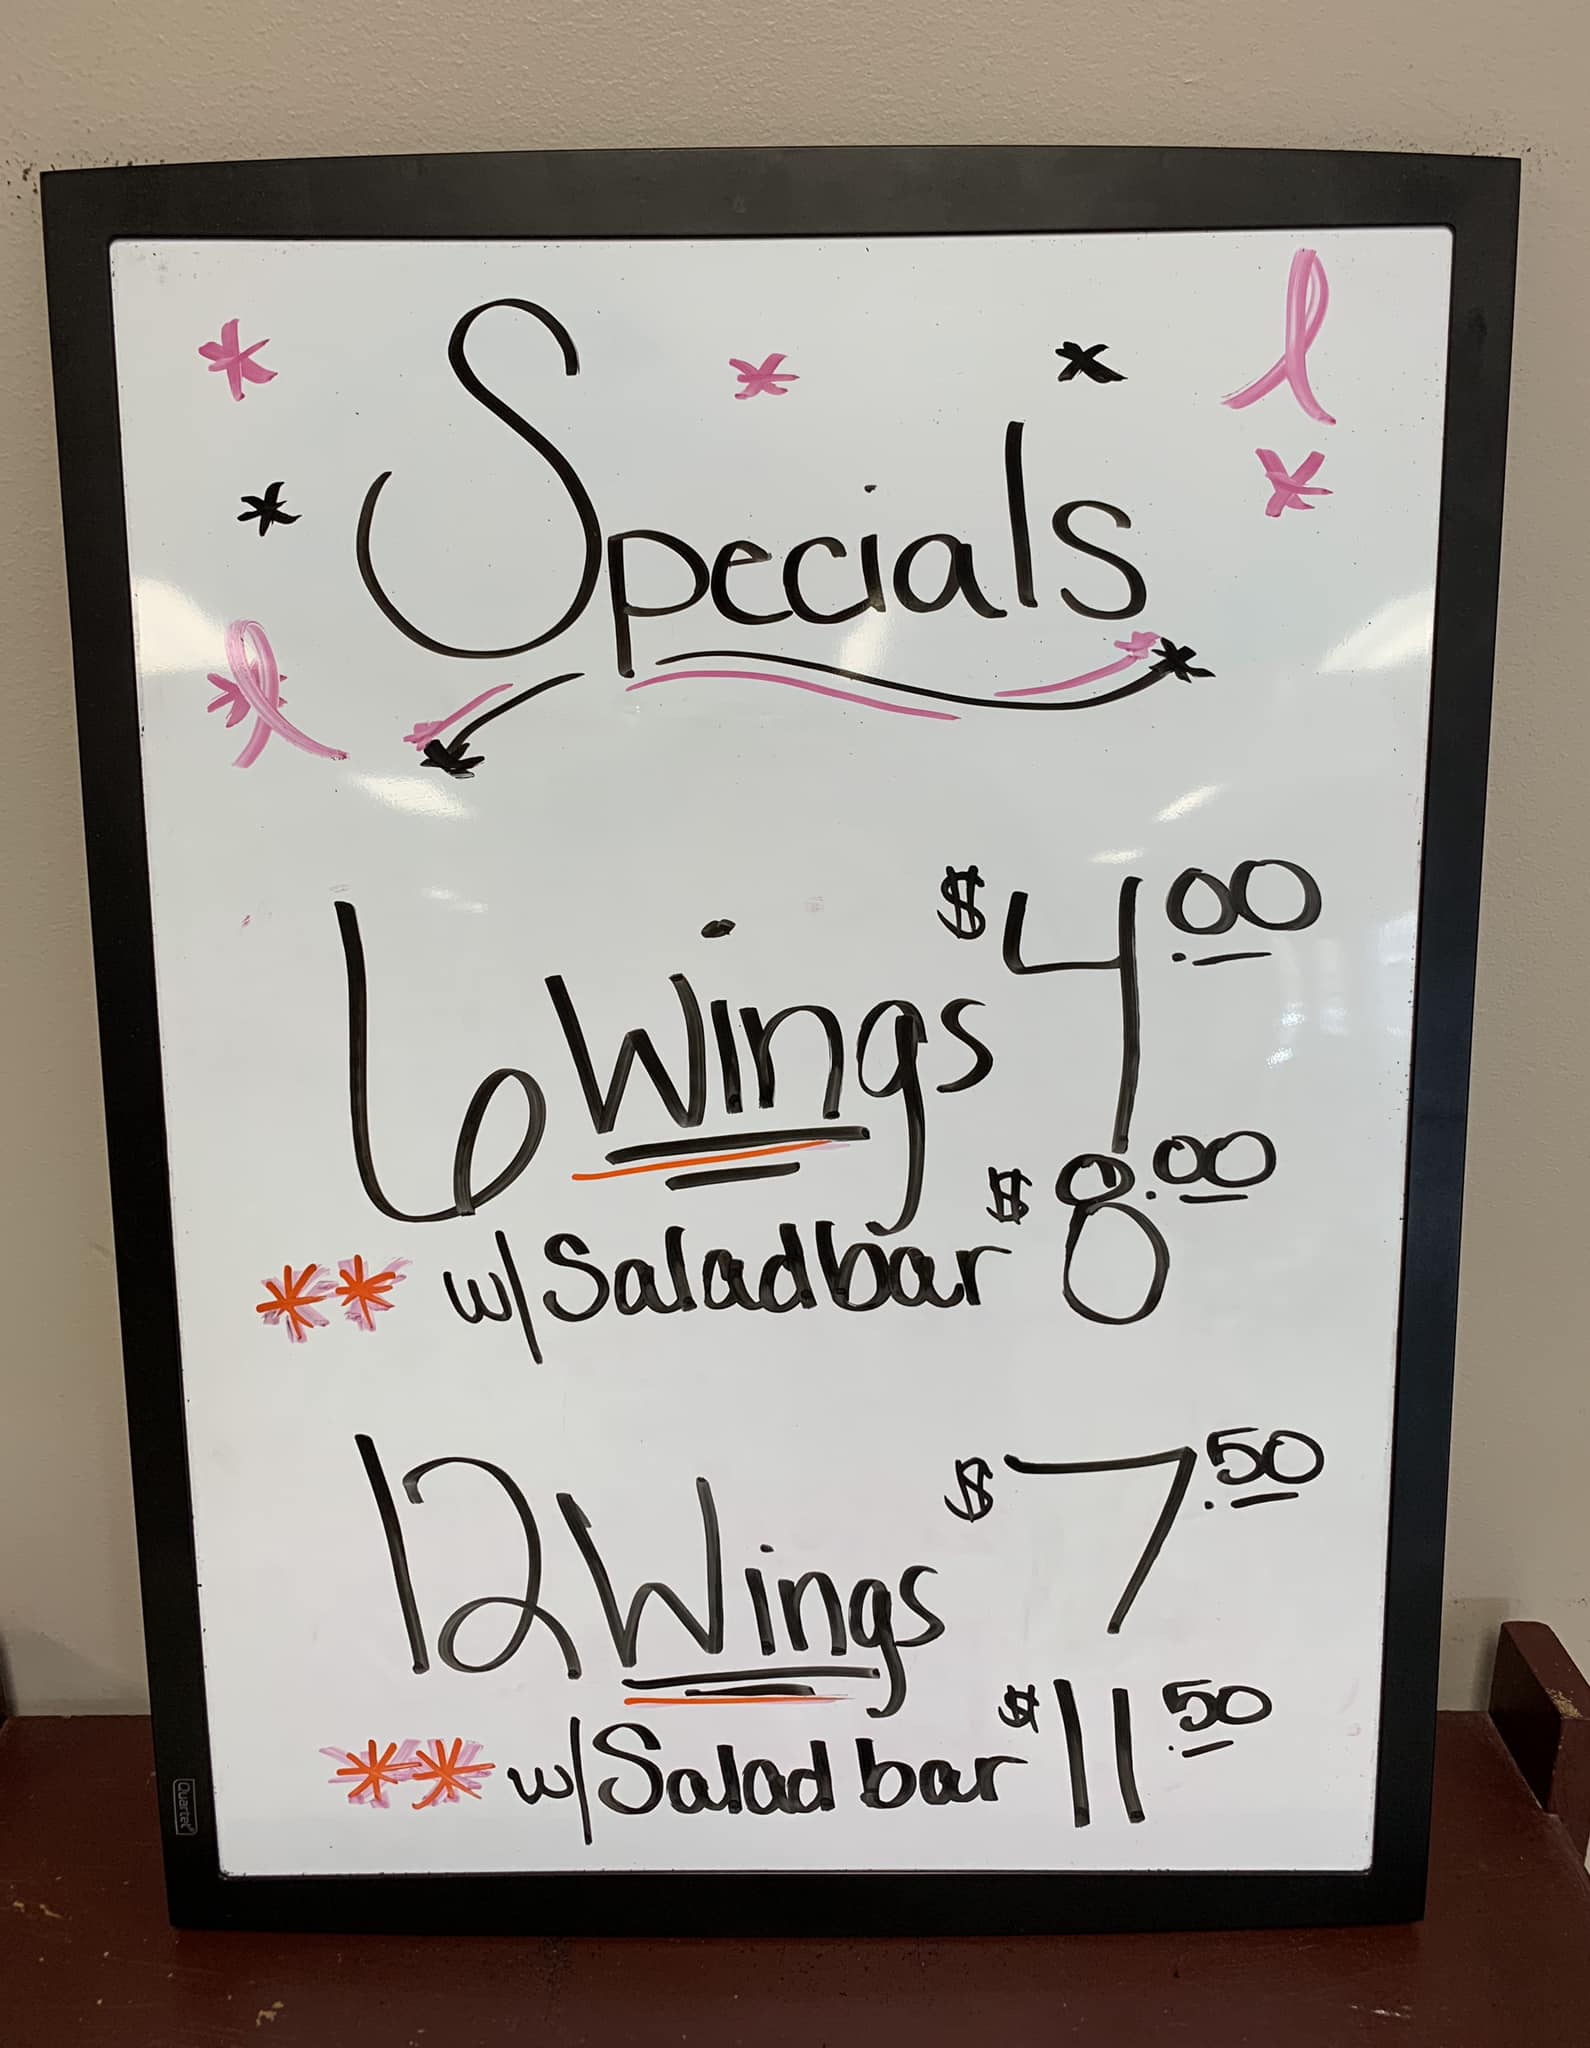 Specials
6 Wings $4.00
** w/Saladbar $8.00
12 Wings $7.50
** w/Salad bar $11.50
Quartet